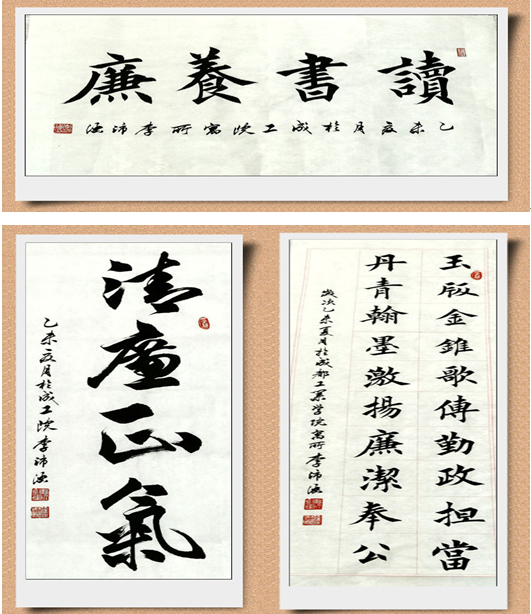 讀書養廉
乙未夏月於成工院寓所李沛
清廉正氣
乙未夏月於成工院李沛
玉版金錐歌傳勤政担當
丹青翰墨激揚廉潔奉公
歲次乙未夏月於成都工業學院寓所李沛